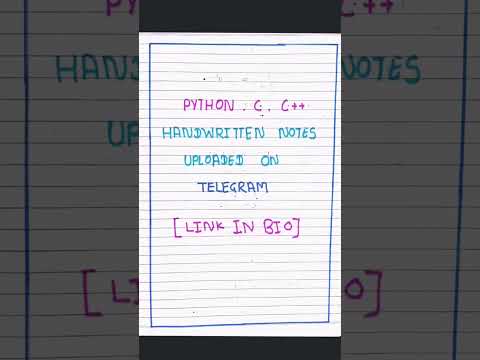 PYTHON . C . C++
HANDWRITTEN NOTES
UPLOADED ON
TELEGRAM
[LINK IN BIO]